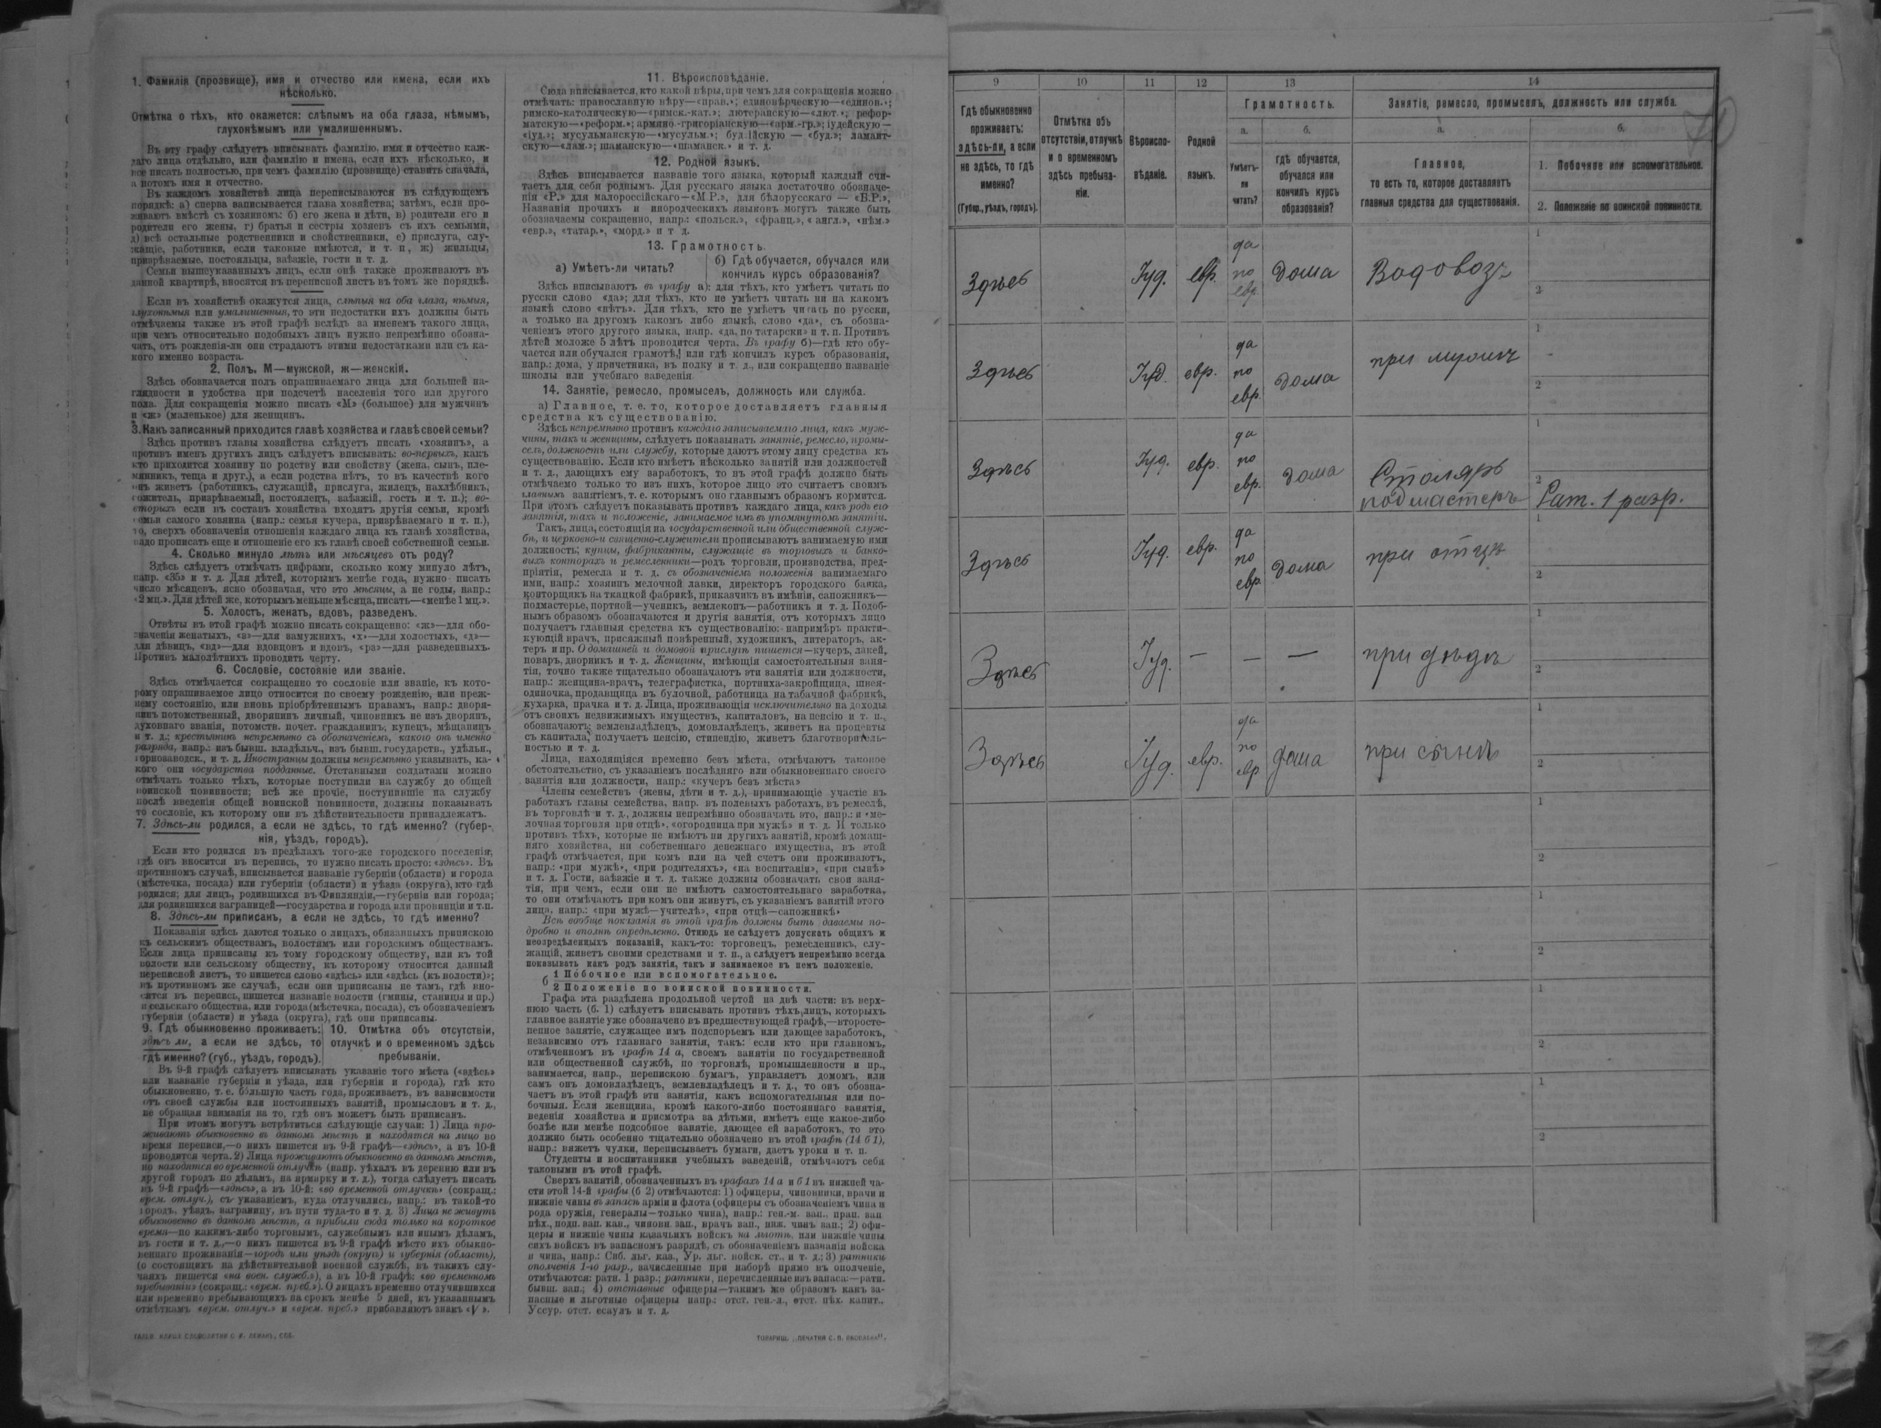 1. Фамилія (прозвище), имя и отчество или имена, если ихъ
нѣсколько.
Отмѣтка о тѣхъ, кто окажется: слѣпымъ на оба глаза, нѣмымъ,
глухонѣмымъ или умалишеннымъ.
Въ эту графу слѣдуетъ вписывать фамилію, имя и отчество каж-
даго лица отдѣльно, или фамилію и имена, если ихъ нѣсколько, и
все писать полностью, при чемъ фамилію (прозвище) ставить сначала,
а потомъ имя и отчество.
Въ каждомъ хозяйствѣ лица переписываются въ слѣдующемъ
порядкѣ: а) сперва записывается глава хозяйства; затѣмъ, если про-
живаютъ вмѣстѣ съ хозяиномъ: б) его жена и дѣти, в) родители его и
родители его жены, г) братья и сестры хозяевъ съ ихъ семьями,
д) всѣ остальные родственники и свойственники, е) прислуга, слу-
жащіе, работники, если таковые имѣются, и т. п., ж) жильцы,
призрѣваемые, постояльцы, заѣзжіе, гости и т. д.
Семьи вышеуказанныхъ лицъ, если онѣ также проживаютъ въ
данной квартирѣ, вносятся въ переписной листъ въ томъ же порядкѣ.
Если въ хозяйствѣ окажутся лица, слѣпыя на оба глаза, нѣмыя,
глухонѣмыя или умалишенныя, то эти недостатки ихъ должны быть
отмѣчаемы также въ этой графѣ вслѣдъ за именемъ такого лица,
при чемъ относительно подобныхъ лицъ нужно непремѣнно обозна-
чать, отъ рожденія-ли они страдаютъ этими недостатками или съ ка-
кого именно возраста.
2. Полъ. М—мужской, ж—женскій.
Здѣсь обозначается полъ опрашиваемаго лица для большей на-
глядности и удобства при подсчетѣ населенія того или другого
пола. Для сокращенія можно писать «М» (большое) для мужчинъ
и «ж» (маленькое) для женщинъ.
3. Какъ записанный приходится главѣ хозяйства и главѣ своей семьи?
Здѣсь противъ главы хозяйства слѣдуетъ писать «хозяинъ», а
противъ именъ другихъ лицъ слѣдуетъ вписывать: во-первыхъ, какъ
кто приходится хозяину по родству или свойству (жена, сынъ, пле-
мянникъ, теща и друг.), а если родства нѣтъ, то въ качествѣ кого
онъ живетъ (работникъ, служащій, прислуга, жилецъ, нахлѣбникъ,
сожитель, призрѣваемый, постоялецъ, заѣзжій, гость и т. п.); во-
вторыхъ если въ составъ хозяйства входятъ другія семьи, кромѣ
семьи самого хозяина (напр.: семья кучера, призрѣваемаго и т. п.),
то, сверхъ обозначенія отношенія каждаго лица къ главѣ хозяйства,
надо прописать еще и отношеніе его къ главѣ своей собственной семьи.
4. Сколько минуло лѣтъ или мѣсяцевъ отъ роду?
Здѣсь слѣдуетъ отмѣчать цифрами, сколько кому минуло лѣтъ,
напр. «35» и т. д. Для дѣтей, которымъ менѣе года, нужно писать
число мѣсяцевъ, ясно обозначая, что это мѣсяцы, а не годы, напр.:
«2 мц.». Для дѣтей же, которымъ меньше мѣсяца, писать—«менѣе 1 мц.».
5. Холостъ, женатъ, вдовъ, разведенъ.
Отвѣты въ этой графѣ можно писать сокращенно: «ж»—для обо-
значенія женатыхъ, «з»—для замужнихъ, «х»—для холостыхъ, «д»—
для дѣвицъ, «вд»—для вдовцовъ и вдовъ, «ра»—для разведенныхъ.
Противъ малолѣтнихъ проводить черту.
6. Сословіе, состояніе или званіе.
Здѣсь отмѣчается сокращенно то сословіе или званіе, къ кото-
рому опрашиваемое лицо относится по своему рожденію, или преж-
нему состоянію, или вновь пріобрѣтеннымъ правамъ, напр.: дворя-
нинъ потомственный, дворянинъ личный, чиновникъ не изъ дворянъ,
духовнаго званія, потомств. почет. гражданинъ, купецъ, мѣщанинъ
и т. д.; крестьянинъ непремѣнно съ обозначеніемъ, какого онъ именно
разряда, напр.: изъ бывш. владѣльч., изъ бывш. государств., удѣльн.,
горнозаводск., и т. д. Иностранцы должны непремѣнно указывать, ка-
кого они государства подданные. Отставными солдатами можно
отмѣчать только тѣхъ, которые поступили на службу до общей
воинской повинности; всѣ же прочіе, поступившіе на службу
послѣ введенія общей воинской повинности, должны показывать
то сословіе, къ которому они въ дѣйствительности принадлежатъ.
7. Здѣсь-ли родился, а если не здѣсь, то гдѣ именно? (губер-
нія, уѣздъ, городъ).
Если кто родился въ предѣлахъ того-же городского поселенія,
гдѣ онъ вносится въ перепись, то нужно писать просто: «здѣсь». Въ
противномъ случаѣ, вписывается названіе губерніи (области) и города
(мѣстечка, посада) или губерніи (области) и уѣзда (округа), кто гдѣ
родился; для лицъ, родившихся въ Финляндіи,—губернія или города;
для родившихся заграницей—государства и города или провинціи и т.п.
8. Здѣсь-ли приписанъ, а если не здѣсь, то гдѣ именно?
Показанія здѣсь даются только о лицахъ, обязанныхъ припискою
къ сельскимъ обществамъ, волостямъ или городскимъ обществамъ.
Если лица приписаны къ тому городскому обществу, или къ той
волости или сельскому обществу, къ которому относится данный
переписной листъ, то пишется слово «здѣсь» или «здѣсь (къ волости)»;
въ противномъ же случаѣ, если они приписаны не тамъ, гдѣ вно-
сятся въ перепись, пишется названіе волости (гмины, станицы и пр.)
и сельскаго общества, или города (мѣстечка, посада), съ обозначеніемъ
губерніи (области) и уѣзда (округа), гдѣ они приписаны.
9. Гдѣ обыкновенно проживаетъ:
здѣсь ли, а если не здѣсь, то
гдѣ именно? (губ., уѣздъ, городъ).
10. Отмѣтка объ отсутствіи,
отлучкѣ и о временномъ здѣсь
пребываніи.
Въ 9-й графѣ слѣдуетъ вписывать указаніе того мѣста («здѣсь»
или названіе губерніи и уѣзда, или губерніи и города), гдѣ кто
обыкновенно, т. е. бо́льшую часть года, проживаетъ, въ зависимости
отъ своей службы или постоянныхъ занятій, промысловъ и т. д.,
не обращая вниманія на то, гдѣ онъ можетъ быть приписанъ.
При этомъ могутъ встрѣтиться слѣдующіе случаи: 1) Лица про-
живаютъ обыкновенно въ данномъ мѣстѣ и находятся на лицо во
время переписи,—о нихъ пишется въ 9-й графѣ—«здѣсь», а въ 10-й
проводится черта. 2) Лица проживаютъ обыкновенно въ данномъ мѣстѣ,
но находятся во временной отлучкѣ (напр. уѣхалъ въ деревню или въ
другой городъ по дѣламъ, на ярмарку и т. д.), тогда слѣдуетъ писать
въ 9-й графѣ—«здѣсь», а въ 10-й: «во временной отлучкѣ» (сокращ.:
«врем. отлуч.»), съ указаніемъ, куда отлучились, напр.: въ такой-то
городъ, уѣздъ, заграницу, въ пути туда-то и т. д. 3) Лица не живутъ
обыкновенно въ данномъ мѣстѣ, а прибыли сюда только на короткое
время—по какимъ-либо торговымъ, служебнымъ или инымъ дѣламъ,
въ гости и т. д.,—о нихъ пишется въ 9-й графѣ мѣсто ихъ обыкно-
веннаго проживанія—городъ или уѣздъ (округъ) и губернія (область),
(о состоящихъ на дѣйствительной военной службѣ, въ такихъ слу-
чаяхъ пишется «на воен. служб.»), а въ 10-й графѣ: «во временномъ
пребываніи» (сокращ.: «врем. преб.»). О лицахъ временно отлучившихся
или временно пребывающихъ на срокъ менѣе 5 дней, къ указаннымъ
отмѣткамъ «врем. отлуч.» и «врем. преб.» прибавляютъ знакъ «V».
11. Вѣроисповѣданіе.
Сюда вписывается, кто какой вѣры, при чемъ для сокращенія можно
отмѣчать: православную вѣру—«прав.»; единовѣрческую—«единов.»;
римско-католическую—«римск.-кат.»; лютеранскую—«лют.»; рефор-
матскую—«реформ.»; армяно-григоріанскую—«арм.-гр.»; іудейскую—
«іуд.»; мусульманскую—«мусульм.»; буддійскую — «буд.»; ламаит-
скую—«лам.»; шаманскую—«шаманск.» и т. д.
12. Родной языкъ.
Здѣсь вписывается названіе того языка, который каждый счи-
таетъ для себя роднымъ. Для русскаго языка достаточно обозначе-
нія «Р.» для малороссійскаго—«М.Р.», для бѣлорусскаго — «Б.Р.»,
Названія прочихъ и инородческихъ языковъ могутъ также быть
обозначаемы сокращенно, напр.: «польск.», «франц.», «англ.», «нѣм.»
«евр.», «татар.», «морд.» и т д.
13. Грамотность.
а) Умѣетъ-ли читать?
б) Гдѣ обучается, обучался или
кончилъ курсъ образованія?
Здѣсь вписываютъ въ графу а): для тѣхъ, кто умѣетъ читать по
русски слово «да»; для тѣхъ, кто не умѣетъ читать ни на какомъ
языкѣ слово «нѣтъ». Для тѣхъ, кто не умѣетъ читать по русски,
а только на другомъ какомъ либо языкѣ, слово «да», съ обозна-
ченіемъ этого другого языка, напр. «да, по татарски» и т. п. Противъ
дѣтей моложе 5 лѣтъ проводится черта. Въ графу б)—гдѣ кто обу-
чается или обучался грамотѣ, или гдѣ кончилъ курсъ образованія,
напр.: дома, у причетника, въ полку и т. д., или сокращенно названіе
школы или учебнаго заведенія.
14. Занятіе, ремесло, промыселъ, должность или служба.
а) Главное, т. е. то, которое доставляетъ главныя
средства къ существованію.
Здѣсь непремѣнно противъ каждаго записываемаго лица, какъ муж-
чины, такъ и женщины, слѣдуетъ показывать занятіе, ремесло, промы-
селъ, должность или службу, которые даютъ этому лицу средства къ
существованію. Если кто имѣетъ нѣсколько занятій или должностей
и т. д., дающихъ ему заработокъ, то въ этой графѣ должно быть
отмѣчаемо только то изъ нихъ, которое лицо это считаетъ своимъ
главнымъ занятіемъ, т. е. которымъ оно главнымъ образомъ кормится.
При этомъ слѣдуетъ показывать противъ каждаго лица, какъ родъ его
занятія, такъ и положеніе, занимаемое имъ въ упомянутомъ занятіи.
Такъ, лица, состоящія на государственной или общественной служ-
бѣ, и церковно-и священно-служители прописываютъ занимаемую ими
должность; купцы, фабриканты, служащіе въ торговыхъ и банко-
выхъ конторахъ и ремесленники—родъ торговли, производства, пред-
пріятія, ремесла и т. д. съ обозначеніемъ положенія занимаемаго
ими, напр.: хозяинъ мелочной лавки, директоръ городского банка,
конторщикъ на ткацкой фабрикѣ, приказчикъ въ имѣніи, сапожникъ—
подмастерье, портной—ученикъ, землекопъ—работникъ и т. д. Подоб-
нымъ образомъ обозначаются и другія занятія, отъ которыхъ лицо
получаетъ главныя средства къ существованію: напримѣръ: практи-
кующій врачъ, присяжный повѣренный, художникъ, литераторъ, ак-
теръ и пр. О домашней и домовой прислугѣ пишется—кучеръ, лакей,
поваръ, дворникъ и т. д. Женщины, имѣющія самостоятельныя заня-
тія, точно также тщательно обозначаютъ эти занятія или должности,
напр.: женщина-врачъ, телеграфистка, портниха-закройщица, швея-
одиночка, продавщица въ булочной, работница на табачной фабрикѣ,
кухарка, прачка и т. д. Лица, проживающія исключительно на доходы
отъ своихъ недвижимыхъ имуществъ, капиталовъ, на пенсію и т. п.,
обозначаютъ: землевладѣлецъ, домовладѣлецъ, живетъ на проценты
съ капитала, получаетъ пенсію, стипендію, живетъ благотворитель-
ностью и т. д.
Лица, находящіяся временно безъ мѣста, отмѣчаютъ таковое
обстоятельство, съ указаніемъ послѣдняго или обыкновеннаго своего
занятія или должности, напр.: «кучеръ безъ мѣста»
Члены семействъ (жены, дѣти и т. д.), принимающіе участіе въ
работахъ главы семейства, напр. въ полевыхъ работахъ, въ ремеслѣ,
въ торговлѣ и т. д., должны непремѣнно обозначать это, напр.: и «ме-
лочная торговля при отцѣ», «огородница при мужѣ» и т. д. И только
противъ тѣхъ, которые не имѣютъ ни другихъ занятій, кромѣ домаш-
няго хозяйства, ни собственнаго денежнаго имущества, въ этой
графѣ отмѣчается, при комъ или на чей счетъ они проживаютъ,
напр.: «при мужѣ», «при родителяхъ», «на воспитаніи», «при сынѣ»
и т. д. Гости, заѣзжіе и т. д. также должны обозначать свои заня-
тія, при чемъ, если они не имѣютъ самостоятельнаго заработка,
то они отмѣчаютъ при комъ они живутъ, съ указаніемъ занятій этого
лица, напр.: «при мужѣ—учителѣ», «при отцѣ—сапожникѣ»
Всѣ вообще показанія въ этой графѣ должны быть даваемы по-
дробно и вполнѣ опредѣленно. Отнюдь не слѣдуетъ допускать общихъ и
неопредѣленныхъ показаній, какъ-то: торговецъ, ремесленникъ, слу-
жащій, живетъ своими средствами и т. п., а слѣдуетъ непремѣнно всегда
показывать какъ родъ занятія, такъ и занимаемое въ немъ положеніе.
б 1 Побочное или вспомогательное.
2 Положеніе по воинской повинности.
Графа эта раздѣлена продольной чертой на двѣ части: въ верх-
нюю часть (б. 1) слѣдуетъ вписывать противъ тѣхъ лицъ, которыхъ
главное занятіе уже обозначено въ предшествующей графѣ,—второсте-
пенное занятіе, служащее имъ подспорьемъ или дающее заработокъ,
независимо отъ главнаго занятія, такъ: если кто при главномъ,
отмѣченномъ въ графѣ 14 а, своемъ занятіи по государственной
или общественной службѣ, по торговлѣ, промышленности и пр.,
занимается, напр., перепискою бумагъ, управляетъ домомъ, или
самъ онъ домовладѣлецъ, землевладѣлецъ и т. д., то онъ обозна-
чаетъ въ этой графѣ эти занятія, какъ вспомогательныя или по-
бочныя. Если женщина, кромѣ какого-либо постояннаго занятія,
веденія хозяйства и присмотра за дѣтьми, имѣетъ еще какое-либо
болѣе или менѣе подсобное занятіе, дающее ей заработокъ, то это
должно быть особенно тщательно обозначено въ этой графѣ (14 б 1),
напр.: вяжетъ чулки, переписываетъ бумаги, даетъ уроки и т. п.
Студенты и воспитанники учебныхъ заведеній, отмѣчаютъ себя
таковыми въ этой графѣ.
Сверхъ занятій, обозначенныхъ въ графахъ 14 а и б 1 въ нижней ча-
сти этой 14-й графы (б 2) отмѣчаются: 1) офицеры, чиновники, врачи и
нижніе чины въ запасѣ арміи и флота (офицеры съ обозначеніемъ чина и
рода оружія, генералы—только чина), напр.: ген.-м. зап., прап. зап
пѣх., подп. зап. кав., чиновн. зап., врачъ зап., ниж. чинъ зап.; 2) офи-
церы и нижніе чины казачьихъ войскъ на льготѣ, или нижніе чины
сихъ войскъ въ запасномъ разрядѣ, съ обозначеніемъ названія войска
и чина, напр.: Сиб. льг. каз., Ур. льг. войск. ст., и т. д.; 3) ратники
ополченія 1-го разр., зачисленные при наборѣ прямо въ ополченіе,
отмѣчаются: ратн. 1 разр.; ратники, перечисленные изъ запаса:—ратн.
бывш. зап.; 4) отставные офицеры—такимъ же образомъ какъ за-
пасные и льготные офицеры напр.: отст. ген.-л., отст. пѣх. капит.,
Уссур. отст. есаулъ и т. д.
9
10
11
12
13
14
Гдѣ обыкновенно
проживаетъ:
здѣсь-ли, а если
не здѣсь, то гдѣ
именно?
(Губер., уѣздъ, городъ).
Отмѣтка объ
отсутствіи, отлучкѣ
и о временномъ
здѣсь пребыва-
ніи.
Вѣроиспо-
вѣданіе.
Родной
языкъ.
Грамотность.
а.
б.
Умѣетъ-
ли
читать?
гдѣ обучается,
обучался или
кончилъ курсъ
образованія?
Занятіе, ремесло, промыселъ, должность или служба.
а.
б.
Главное,
то есть то, которое доставляетъ
главныя средства для существованія.
1. Побочное или вспомогательное.
2. Положеніе по воинской повинности.
Здѣсь Іуд. евр. да по евр. дома Водовозъ
1
2
Здѣсь Іуд. евр. да по евр. дома при мужѣ
1
2
Здѣсь Іуд. евр. да по евр. дома Столяръ подмастеръ
1
2 Рат. 1 разр.
Здѣсь Іуд. евр. да по евр. дома при отцѣ
1
2
Здѣсь Іуд. — — — при дѣдѣ
1
2
Здѣсь Іуд. евр. да по евр дома при сынѣ
1
2
1
2
1
2
1
2
1
2